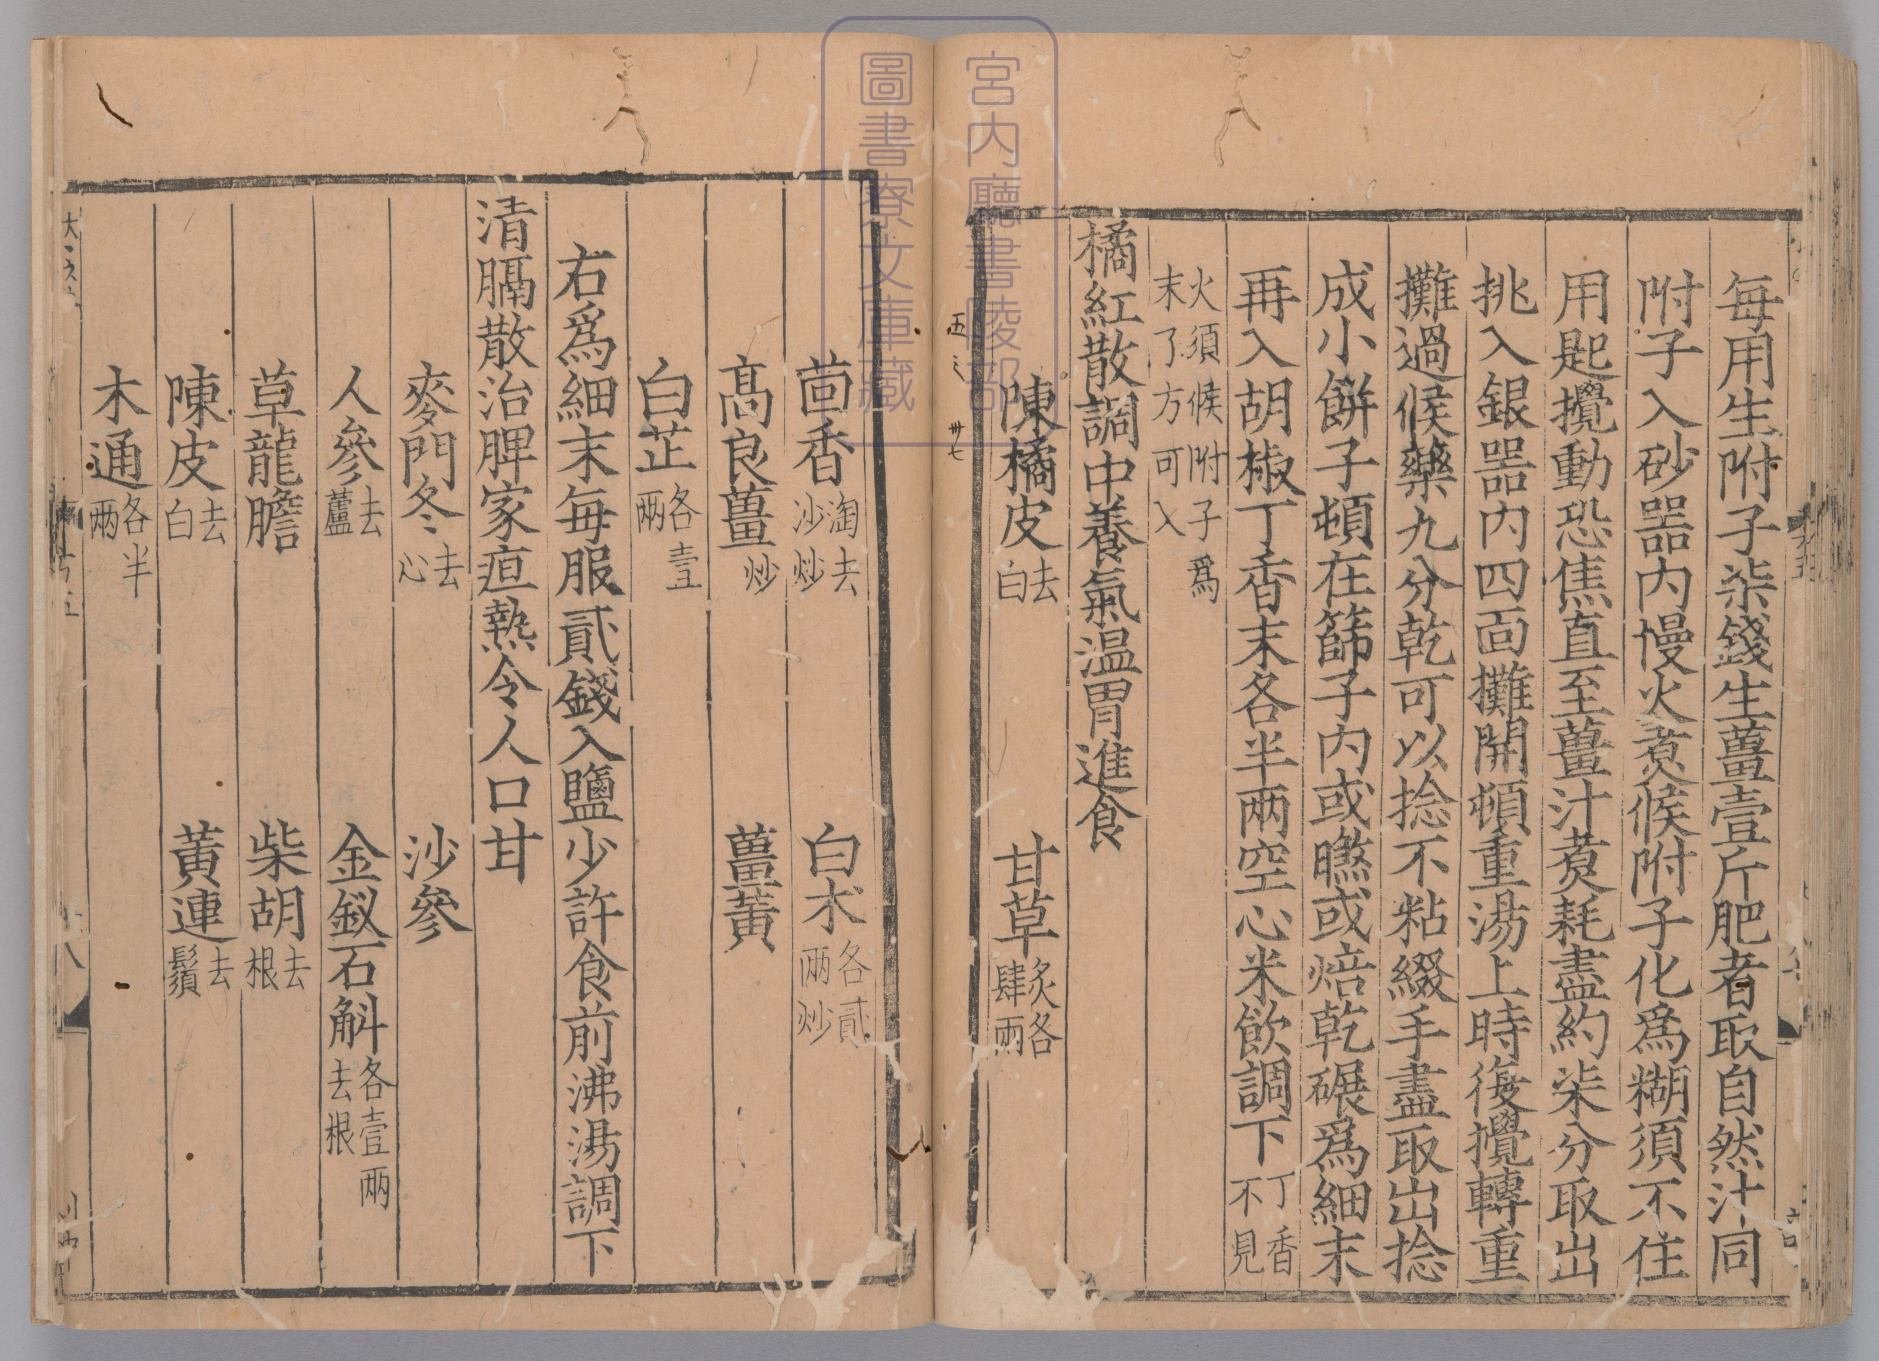 每用生附子柒錢生薑壹斤肥者取自然汁同
附子入砂器内慢火煮候附子化爲糊須不住
用匙攪動恐焦直至薑汁煮耗盡約柒分取出
挑入銀器内四面攤開頓重湯上時復攪轉重
攤過候藥九分乾可以捻不粘綴手盡取出捻
成小餅子頓在篩子内或㬠或焙乾碾爲細末
再入胡椒丁香末各半兩空心米飲調下丁香不見
火須候附子爲末了方可入
橘紅散調中養氣温胃進食
陳橘皮去白　甘草炙各肆兩
茴香淘去沙炒　白朮各貳兩炒
高良薑炒　薑黄
白芷各壹兩
右爲細末每服貳錢入鹽少許食前沸湯調下
清膈散治脾家疸熱令人口甘
麥門冬去心　沙參
人參去蘆　金釵石斛各壹兩去根
草龍膽　柴胡去根
陳皮去白　黄連去鬚
木通各半兩
宮内廳書陵部
圖書寮文庫藏